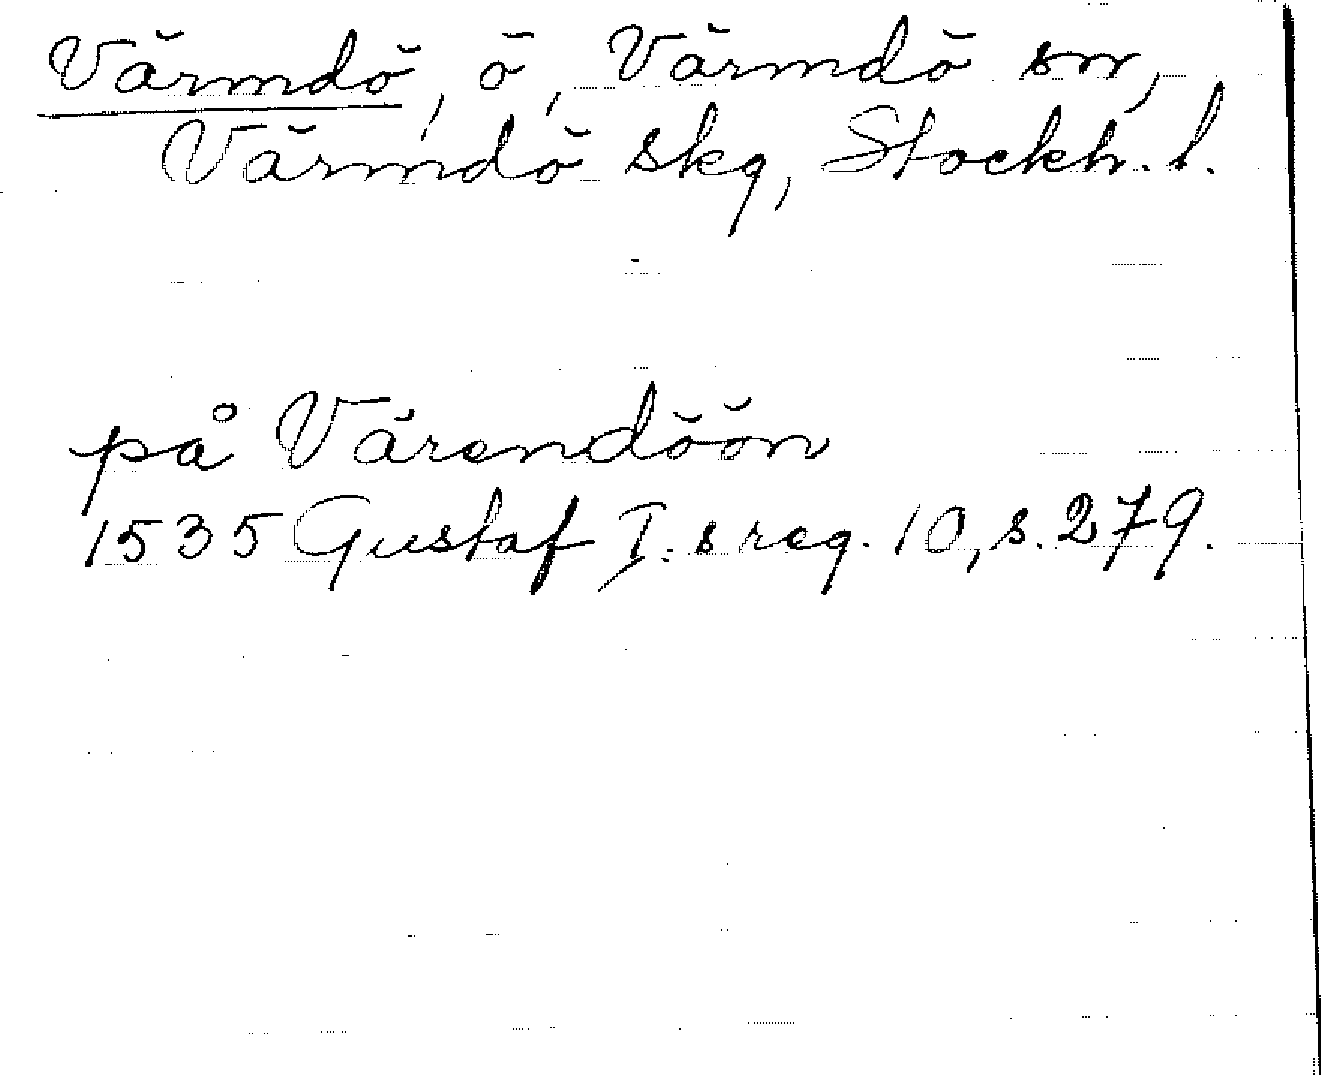 Värmdö, ö, Värmdö sn,
Värmdö skg, Stockh. l.
på Värendöön
1535 Gustaf I:s reg. 10, s. 279.